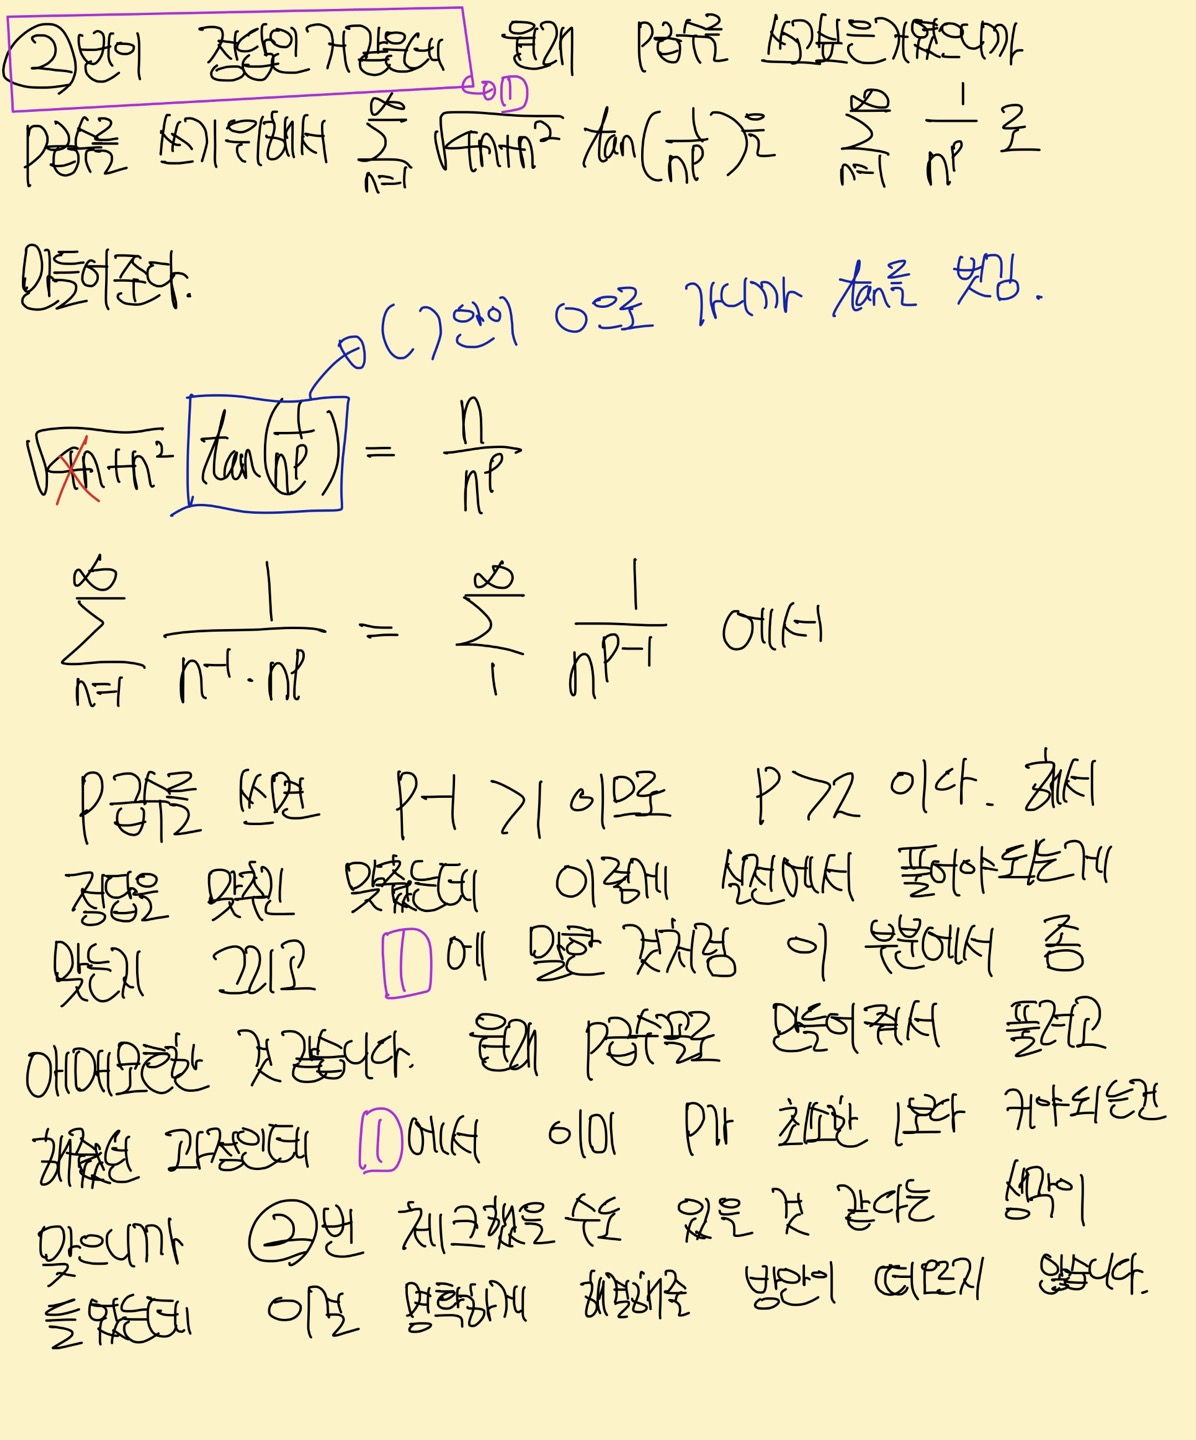 ②번이 정답인거같은데 원래 P급수를 쓰고싶은거였으니까
①
P급수를 쓰기위해서 ∑_{n=1}^{∞} √(4n+n²) tan(1/n^p)을 ∑_{n=1}^{∞} 1/n^p 로
만들어준다.
( )안이 0으로 가니까 tan를 벗김.
√(4n+n²) tan(1/n^p) = n/n^p
∑_{n=1}^{∞} 1/(n^{-1}·n^p) = ∑_{1}^{∞} 1/n^{p-1} 에서
P급수를 쓰면 P-1 >1 이므로 P>2 이다. 해서
정답을 맞추긴 맞췄는데 이렇게 실전에서 풀어야되는게
맞는지 그리고 ①에 말한 것처럼 이 부분에서 좀
애매모호한 것 같습니다. 원래 P급수꼴로 만들어줘서 풀려고
해줬던 과정인데 ①에서 이미 P가 최소한 1보다 커야되는건
맞으니까 ②번 체크했을 수도 있을 것 같다는 생각이
들었는데 이걸 명확하게 해결해줄 방안이 떠오르지 않습니다.